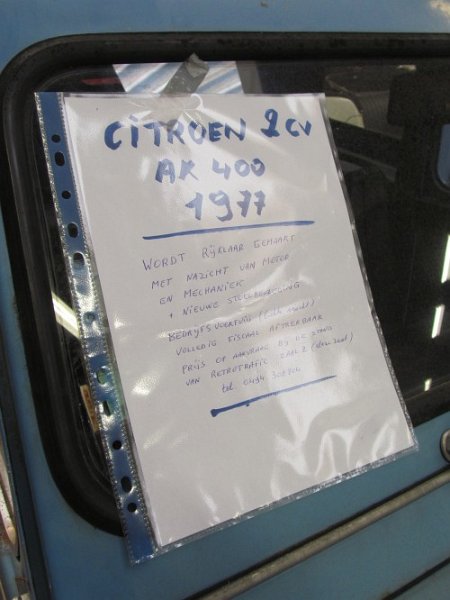 CITROEN 2CV
AK 400
1977
WORDT RIJKLAAR GEMAAKT
MET NAZICHT VAN MOTOR
EN MECHANIEK
+ NIEUWE STOELBEKLEDING
BEDRIJFSVOERTUIG
VOLLEDIG FISCAAL AFTREKBAAR
PRIJS OP AANVRAAG BIJ DE STAND
VAN RETROTRAFIC ZAAL 2
tel 0494